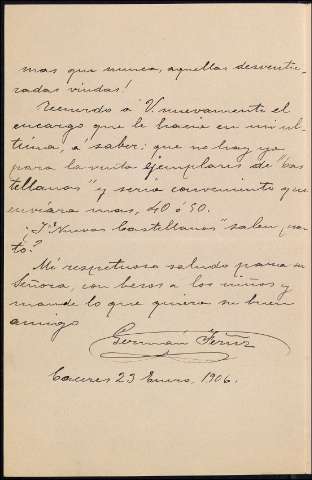 mas que nunca, aquellas desventu-
radas viudas!
Recuerdo á V. nuevamente el
encargo que le hacia en mi úl-
tima, á saber: que no hay ya
para la venta ejemplares de "Cas
tellanas" y seria conveniente que
enviára mas, 40 ó 50.
¿Y "Nuevas Castellanas" salen pron-
to?
Mi respetuoso saludo para su
Señora, con besos a los niños y
mande lo que quiera su buen
amigo
Germán
Cáceres 23 Enero, 1906.